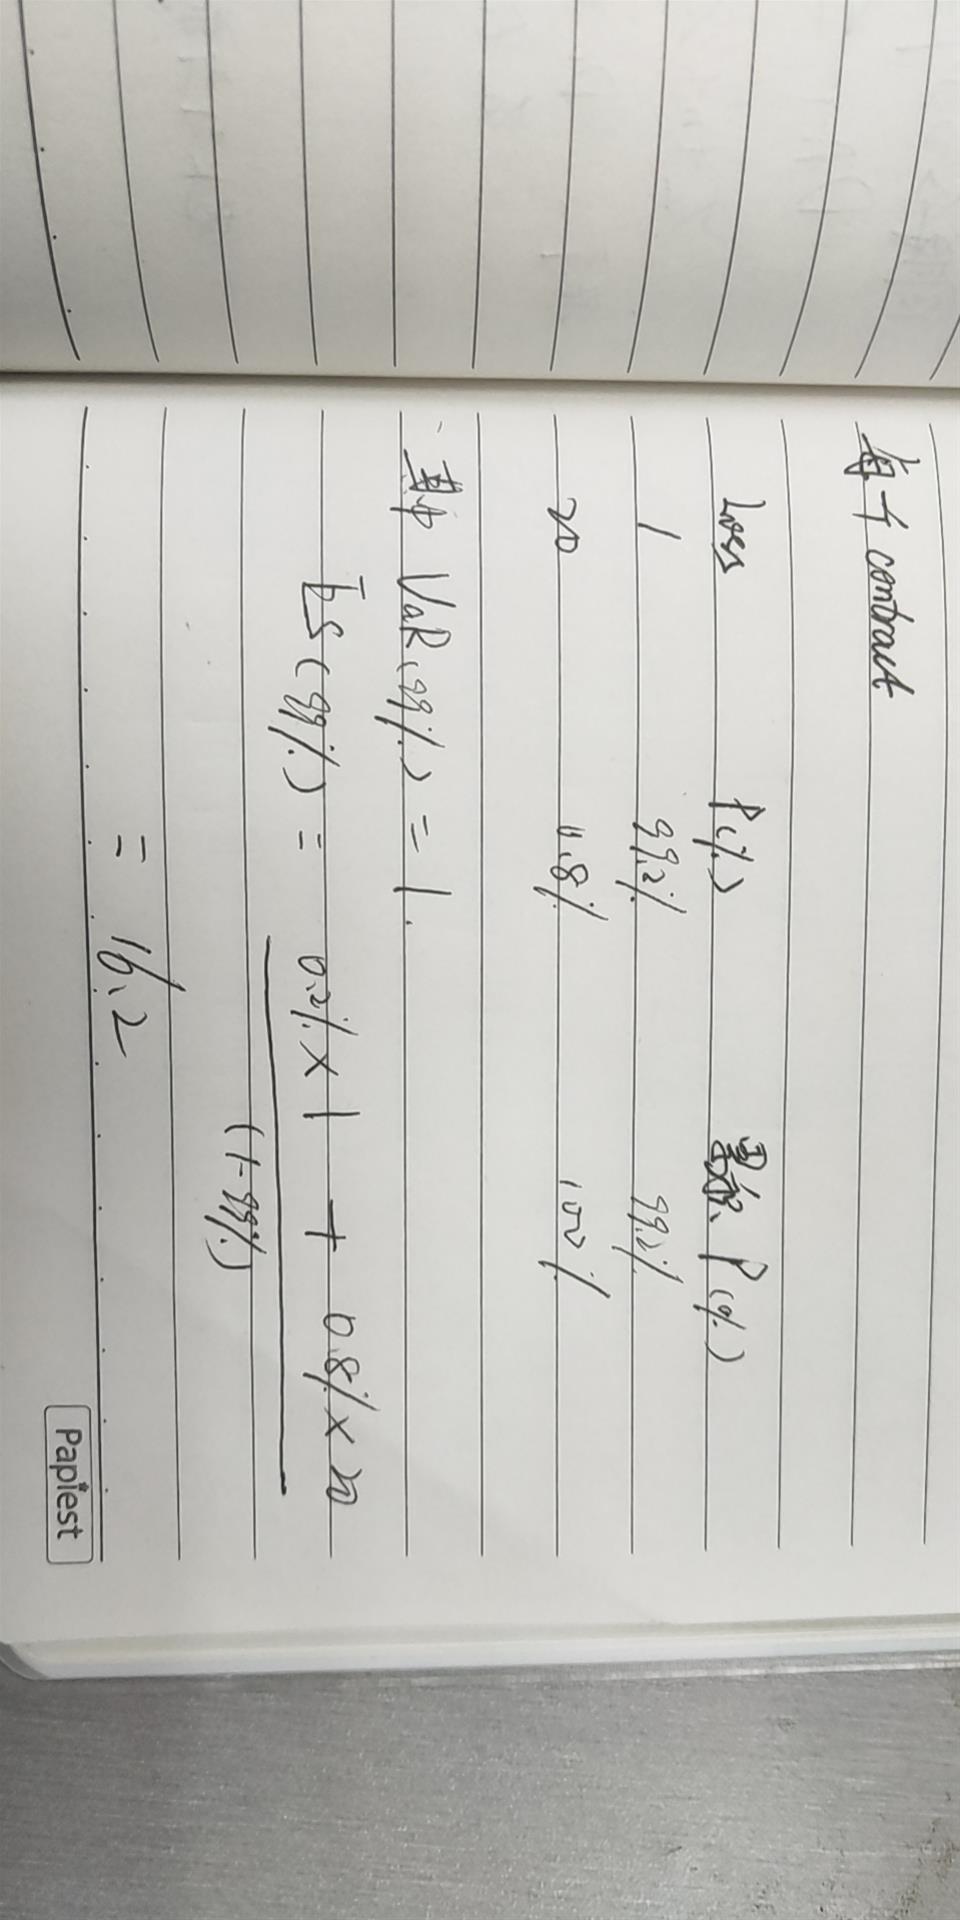 每个 contract
Loss P(%) 累积 P(%)
1 99.2% 99.2%
20 0.8% 100%
其中 VaR(99%) = 1.
ES(99%) = 0.2% × 1 + 0.8% × 20
(1-99%)
= 16.2
Papiest